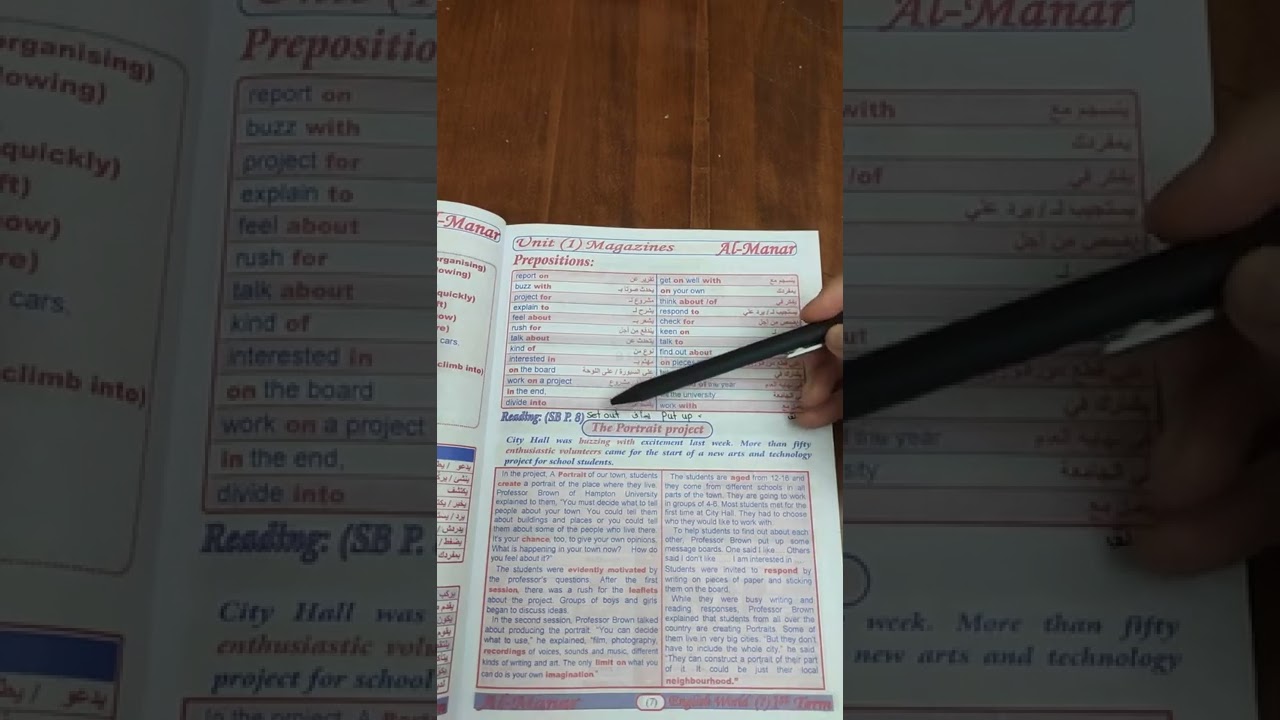 Unit (1) Magazines Al-Manar
Prepositions:
report on تقرير عن get on well with ينسجم مع
buzz with يحدث صوتا بـ on your own بمفردك
project for مشروع لـ think about /of يفكر في
explain to يشرح لـ respond to يستجيب لـ / يرد علي
feel about يشعر بـ check for
rush for يندفع من أجل keen on
talk about يتحدث عن talk to
kind of نوع من find out about
interested in مهتم بـ on pieces
on the board علي السبورة / علي اللوحة
work on a project مشروع of the year
in the end, the university الجامعة
divide into work with
Reading: (SB P. 8) Set out Put up
The Portrait project
City Hall was buzzing with excitement last week. More than fifty
enthusiastic volunteers came for the start of a new arts and technology
project for school students.
In the project, A Portrait of our town, students
create a portrait of the place where they live.
Professor Brown of Hampton University
explained to them, "You must decide what to tell
people about your town. You could tell them
about buildings and places or you could tell
them about some of the people who live there.
It's your chance, too, to give your own opinions.
What is happening in your town now? How do
you feel about it?"
The students were evidently motivated by
the professor's questions. After the first
session, there was a rush for the leaflets
about the project. Groups of boys and girls
began to discuss ideas.
In the second session, Professor Brown talked
about producing the portrait. "You can decide
what to use," he explained, "film, photography,
recordings of voices, sounds and music, different
kinds of writing and art. The only limit on what you
can do is your own imagination."
The students are aged from 12-16 and
they come from different schools in all
parts of the town. They are going to work
in groups of 4-6. Most students met for the
first time at City Hall. They had to choose
who they would like to work with.
To help students to find out about each
other, Professor Brown put up some
message boards. One said I like... Others
said I don't like ... I am interested in ...
Students were invited to respond by
writing on pieces of paper and sticking
them on the board.
While they were busy writing and
reading responses, Professor Brown
explained that students from all over the
country are creating Portraits. Some of
them live in very big cities. "But they don't
have to include the whole city," he said.
"They can construct a portrait of their part
of it. It could be just their local
neighbourhood."
Al-Manar (7) English World (1) 1st Term